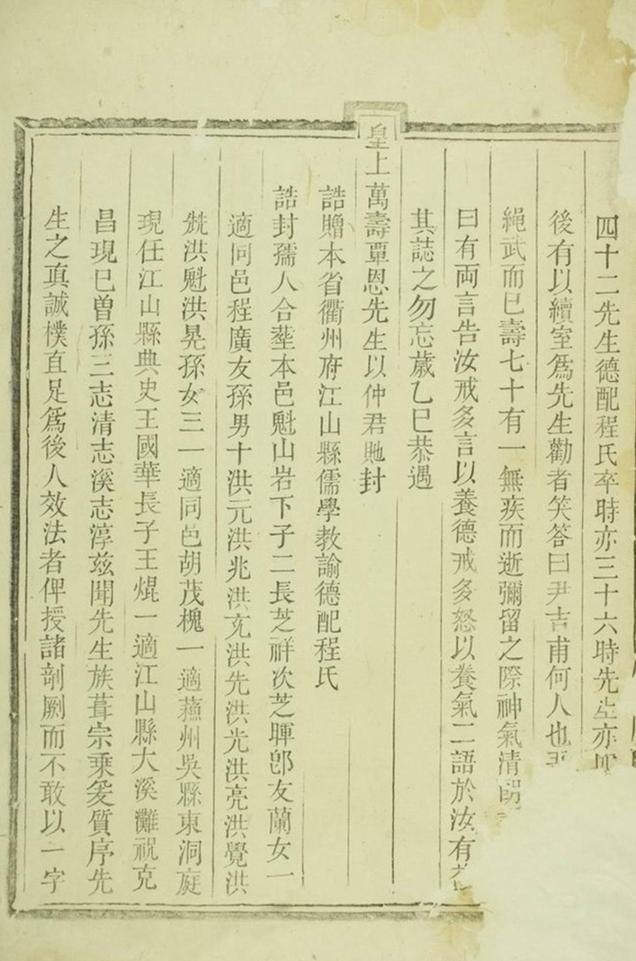 四十二先生德配程氏卒時亦三十六時先生亦
後有以續室爲先生勸者笑答曰尹吉甫何人也
繩武而已壽七十有一無疾而逝彌留之際神氣清
曰有两言告汝戒多言以養德戒多怒以養氣二語於汝有
其誌之勿忘歲乙巳恭遇
皇上萬壽覃恩先生以仲君貤封
誥贈本省衢州府江山縣儒學教諭德配程氏
誥封孺人合塟本邑魁山岩下子二長芝祥次芝暉卽友蘭女一
適同邑程廣友孫男十洪元洪兆洪充洪先洪光洪亮洪覺洪
兟洪魁洪晃孫女三一適同邑胡茂槐一適蘓州吳縣東洞庭
現任江山縣典史王國華長子王焜一適江山縣大溪灘祝克
昌現巳曾孫三志清志溪志淳兹聞先生族葺宗乘爰質序先
生之真誠樸直足爲後人效法者俾授諸剞劂而不敢以一字